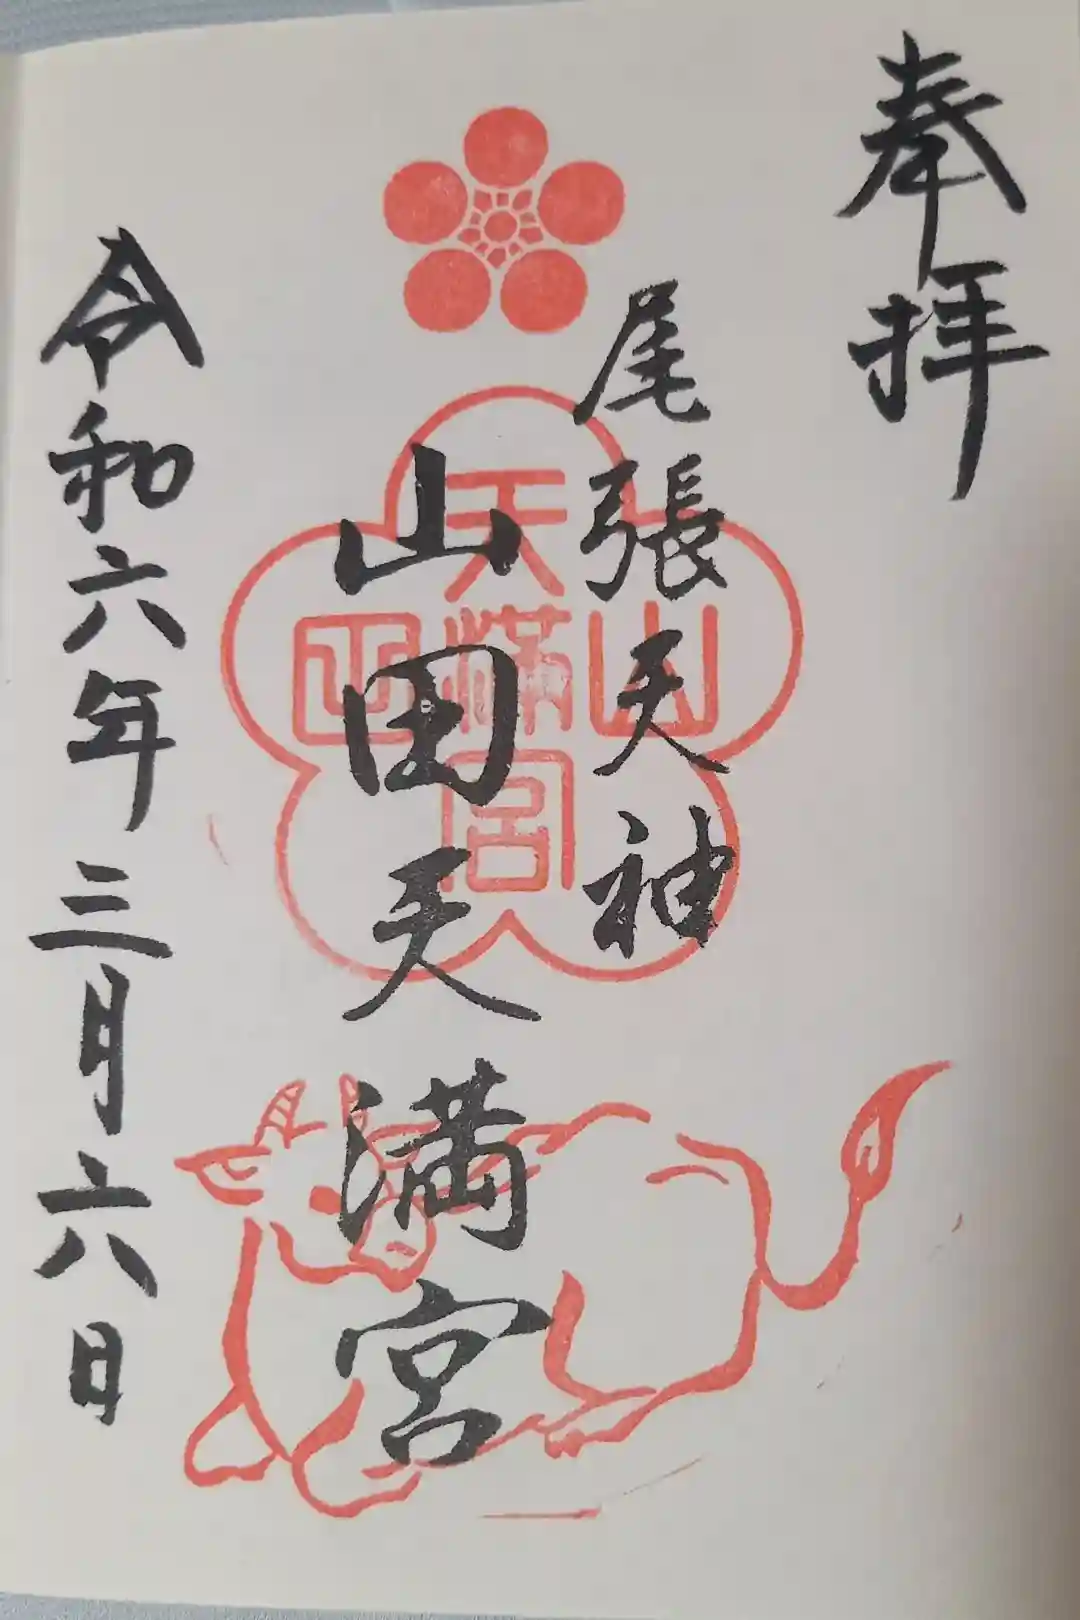 奉拝
尾張天神
山田天満宮
令和六年三月六日
山
天満宮